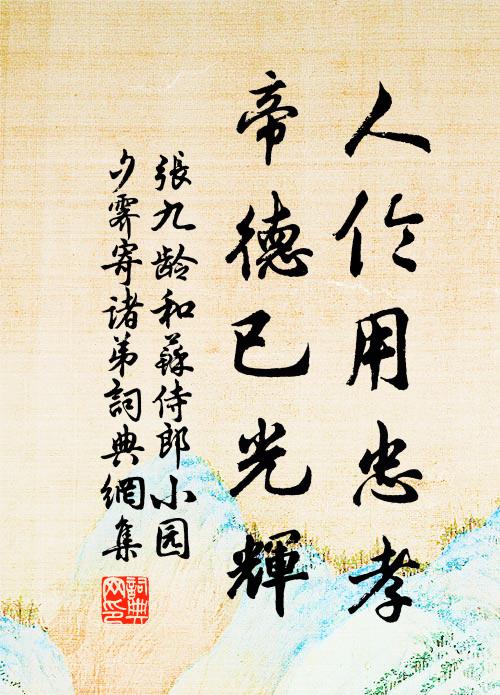 人伦用忠孝
帝德已光輝
張九龄和蘇侍郎小园
夕霽寄诸弟詞典網集
詞典网印